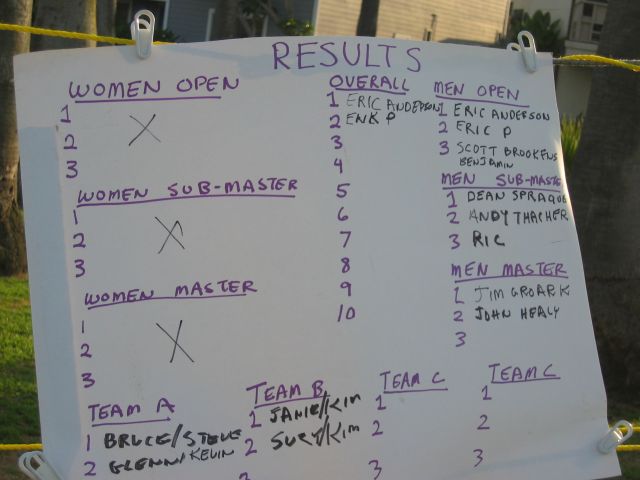 RESULTS
WOMEN OPEN
1
2
3
X
WOMEN SUB-MASTER
1
2
3
X
WOMEN MASTER
1
2
3
X
OVERALL
1 ERIC ANDERSON
2 ERIK P
3
4
5
6
7
8
9
10
MEN OPEN
1 ERIC ANDERSON
2 ERIC P
3 SCOTT BROOKENS
BENJAMIN
MEN SUB-MASTE
1 DEAN SPRAQUE
2 ANDY THACHER
3 RIC
MEN MASTER
1 JIM GROARK
2 JOHN HEALY
3
TEAM A
1 BRUCE/STEVE
2 GLENN/KEVIN
TEAM B
1 JANIE/KIM
2 SUZY/KIM
3
TEAM C
1
2
3
TEAM C
1
2
3